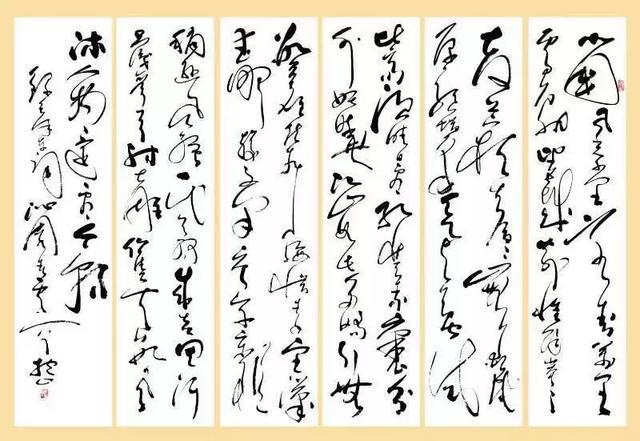 北国风光千里冰封万里
雪飘望长城内外惟余莽莽
大河上下顿失滔滔山舞银蛇
原驰蜡象欲与天公试
比高须晴日看红装素裹分
外妖娆江山如此多娇引无
数英雄竞折腰惜秦皇汉
武略输文采唐宗宋祖
稍逊风骚一代天骄成吉思汗
只识弯弓射大雕俱往矣数风
流人物还看今朝
毛泽东词沁园春雪